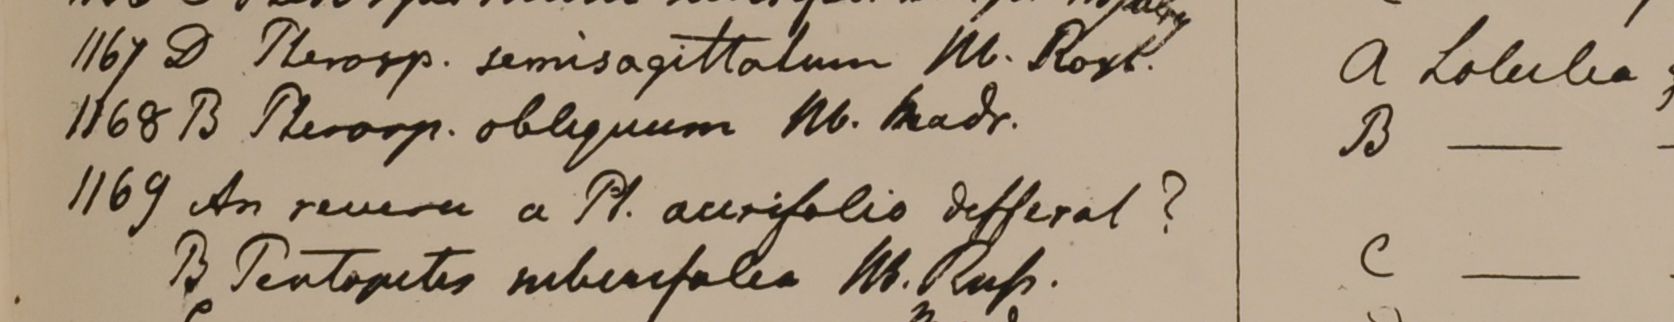 1167 D Pterosp. semisagittatum M. Roxb.
1168 B Pterosp. obliquum M. Madr.
1169 An revera a Pt. acerifolio differat?
B Pentapetes suberifolia M. Russ.
A Lolulea
B —
C —